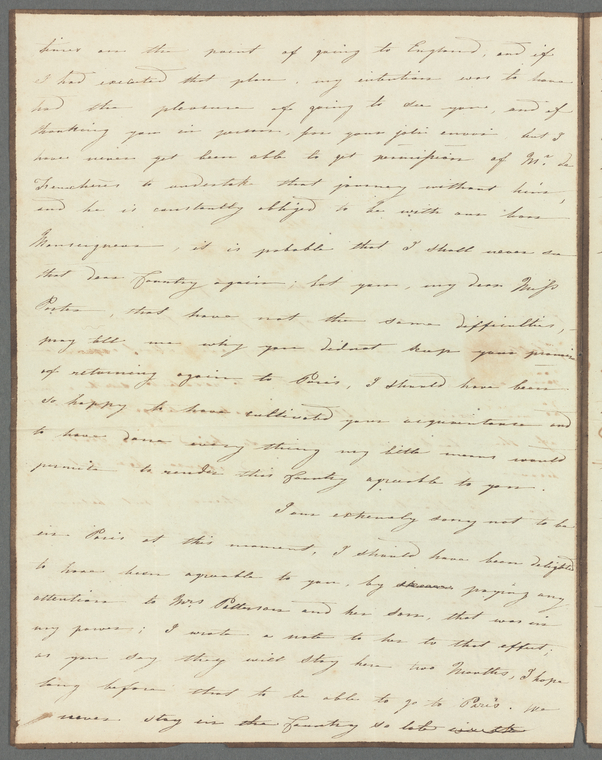 times on the point of going to England, and if
I had executed that plan, my intention was to have
had the pleasure of going to see you, and of
thanking you in person, for your joli envoi but I
have never yet been able to get permission of Mr. de
to undertake that journey without him,
and he is constantly obliged to be with our bon
Monseigneur, it is probable that I shall never see
that dear Country again; but you, my dear Miss
Porter, that have not the same difficulties,
pray tell me why you did not keep your promise
of returning again to Paris, I should have been
so happy to have cultivated your acquaintance and
to have done every thing my little means would
permit to render this Country agreable to you.
I am extremely sorry not to be
in Paris at this moment, I should have been delighted
to have been agreable to you, by paying any
attention to Mrs Patterson and her son, that was in
my power; I wrote a note to her to that effect;
as you say they will stay here two Months, I hope
long before that to be able to go to Paris. We
never stay in the Country so late